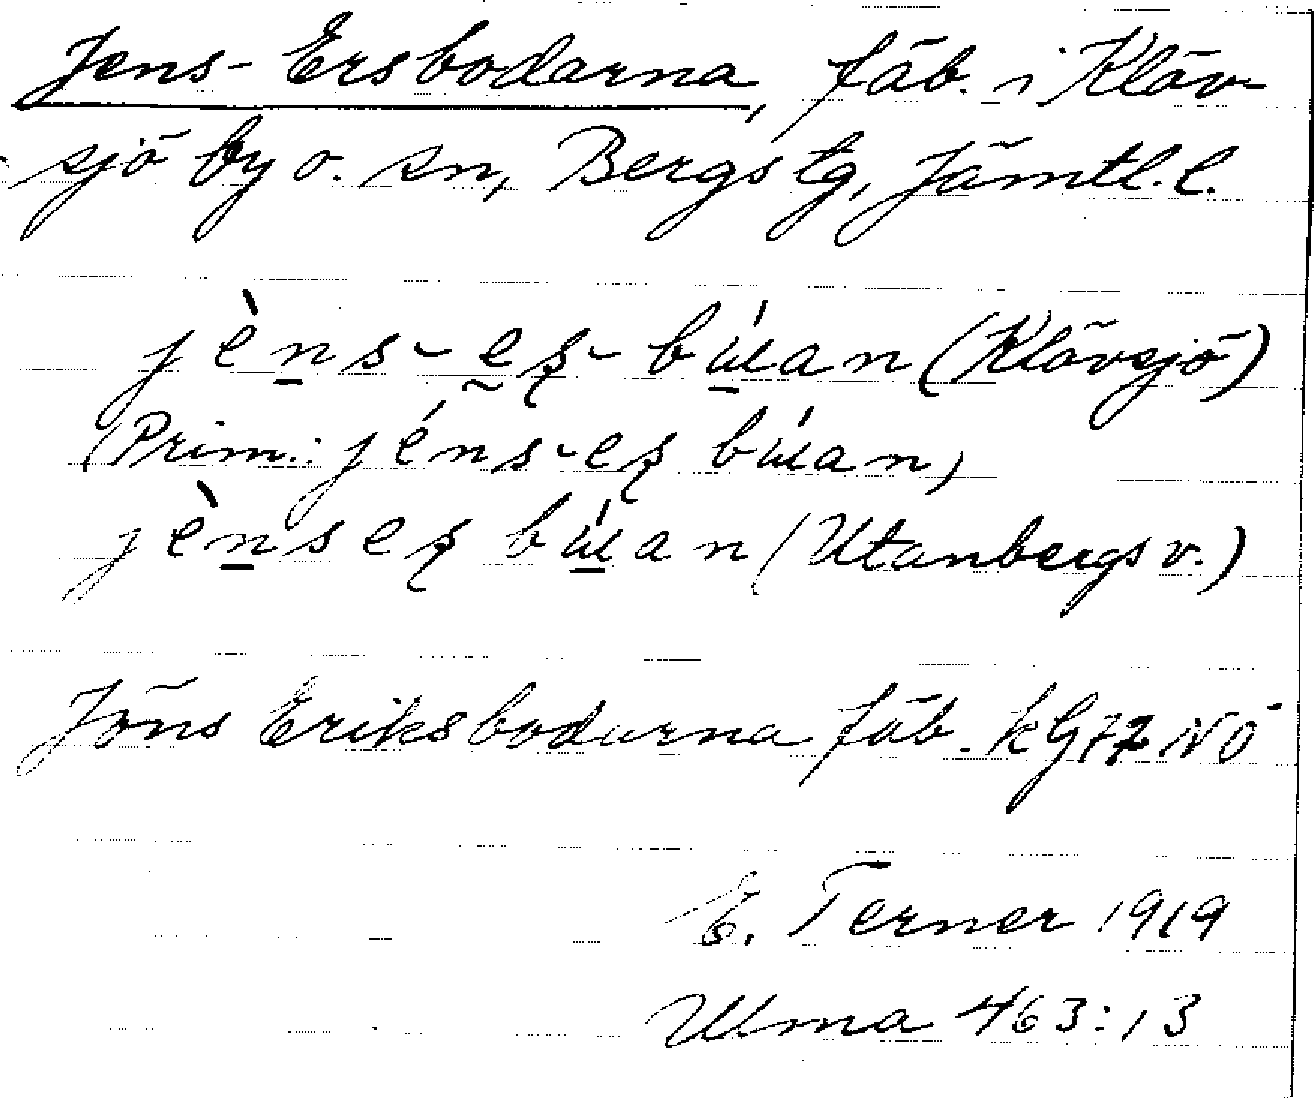 Jens-Ersbodarna, fäb. i Klöv-
sjö by o. sn, Bergs tg, Jämtl. l.
jèn̲s-ḛʂ-bɯ̲́an (Klövsjö)
(Prim.: jéns-eʂ bɯ́an)
jèn̲seʂ bɯ̲́an (Utanbergsv.)
Jöns Eriksbodarna fäb. kG77 NÖ
E. Terner 1919
Ulma 463:13